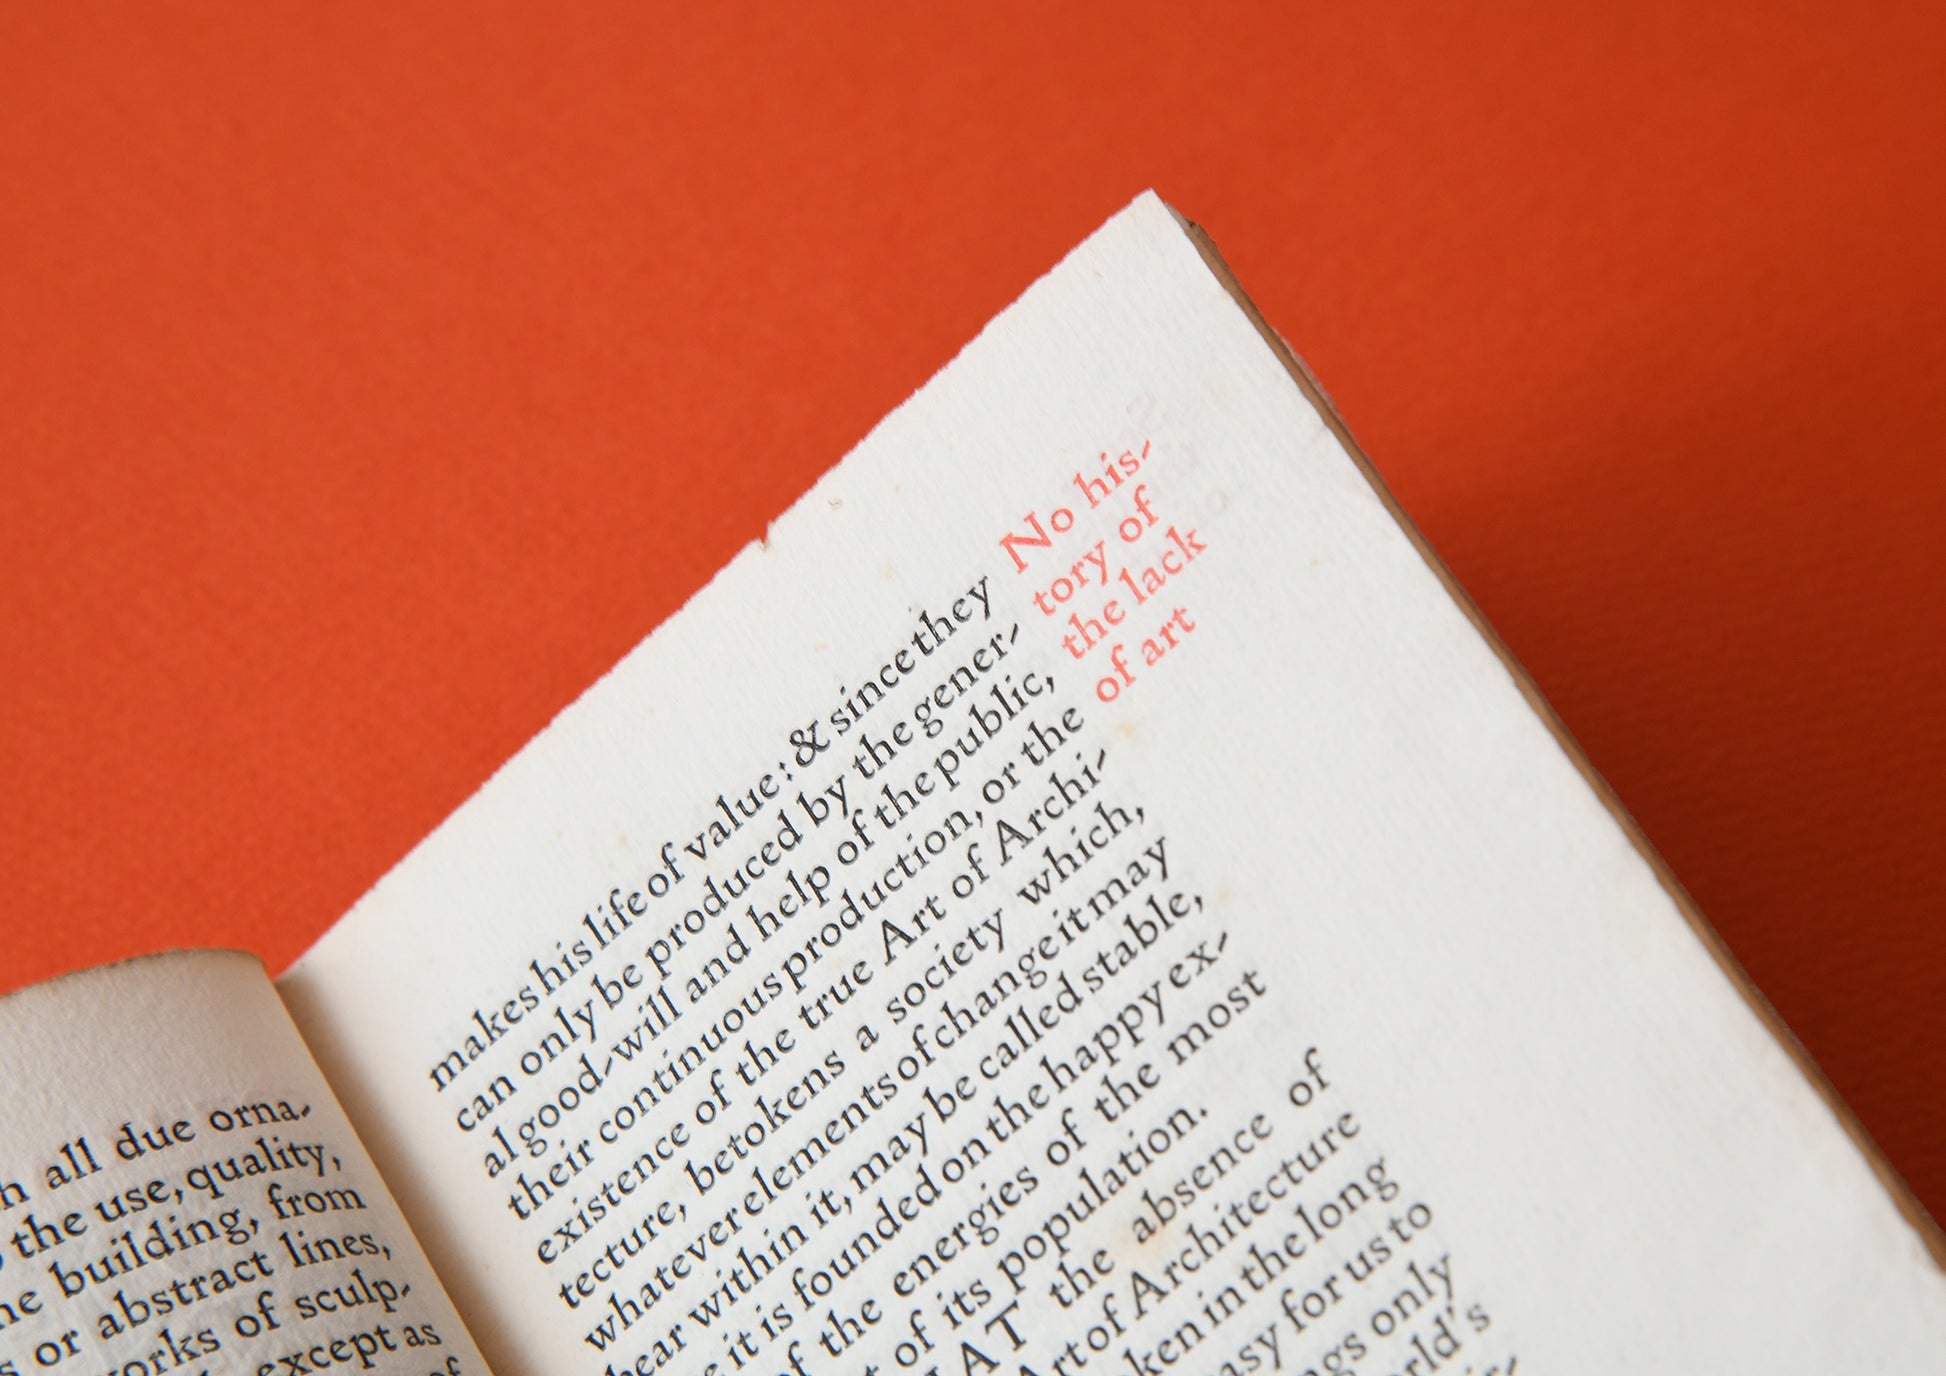 all due orna-
the use, quality,
building, from
or abstract lines,
of sculp-
except as
of
No his-
tory of
the lack
of art
makes his life of value: & since they
can only be produced by the gener-
al good-will and help of the public,
their continuous production, or the
existence of the true Art of Archi-
tecture, betokens a society which,
whatever elements of change it may
bear within it, may be called stable,
it is founded on the happy ex-
of the energies of the most
of its population.
the absence of
Art of Architecture
in the long
for us to
only